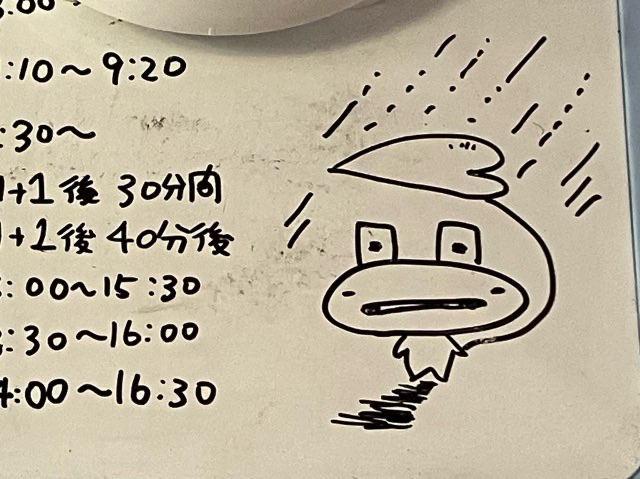 :00
:10〜9:20
:30〜
+1後 30分間
+2後 40分後
:00〜15:30
:30〜16:00
4:00〜16:30